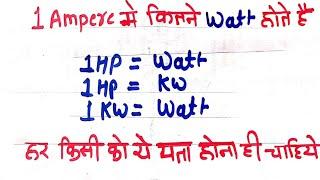 1 Ampere मे कितने Watt होते है
1 HP = Watt
1 HP = KW
1 KW = Watt
हर किसी को ये पता होना ही चाहिये